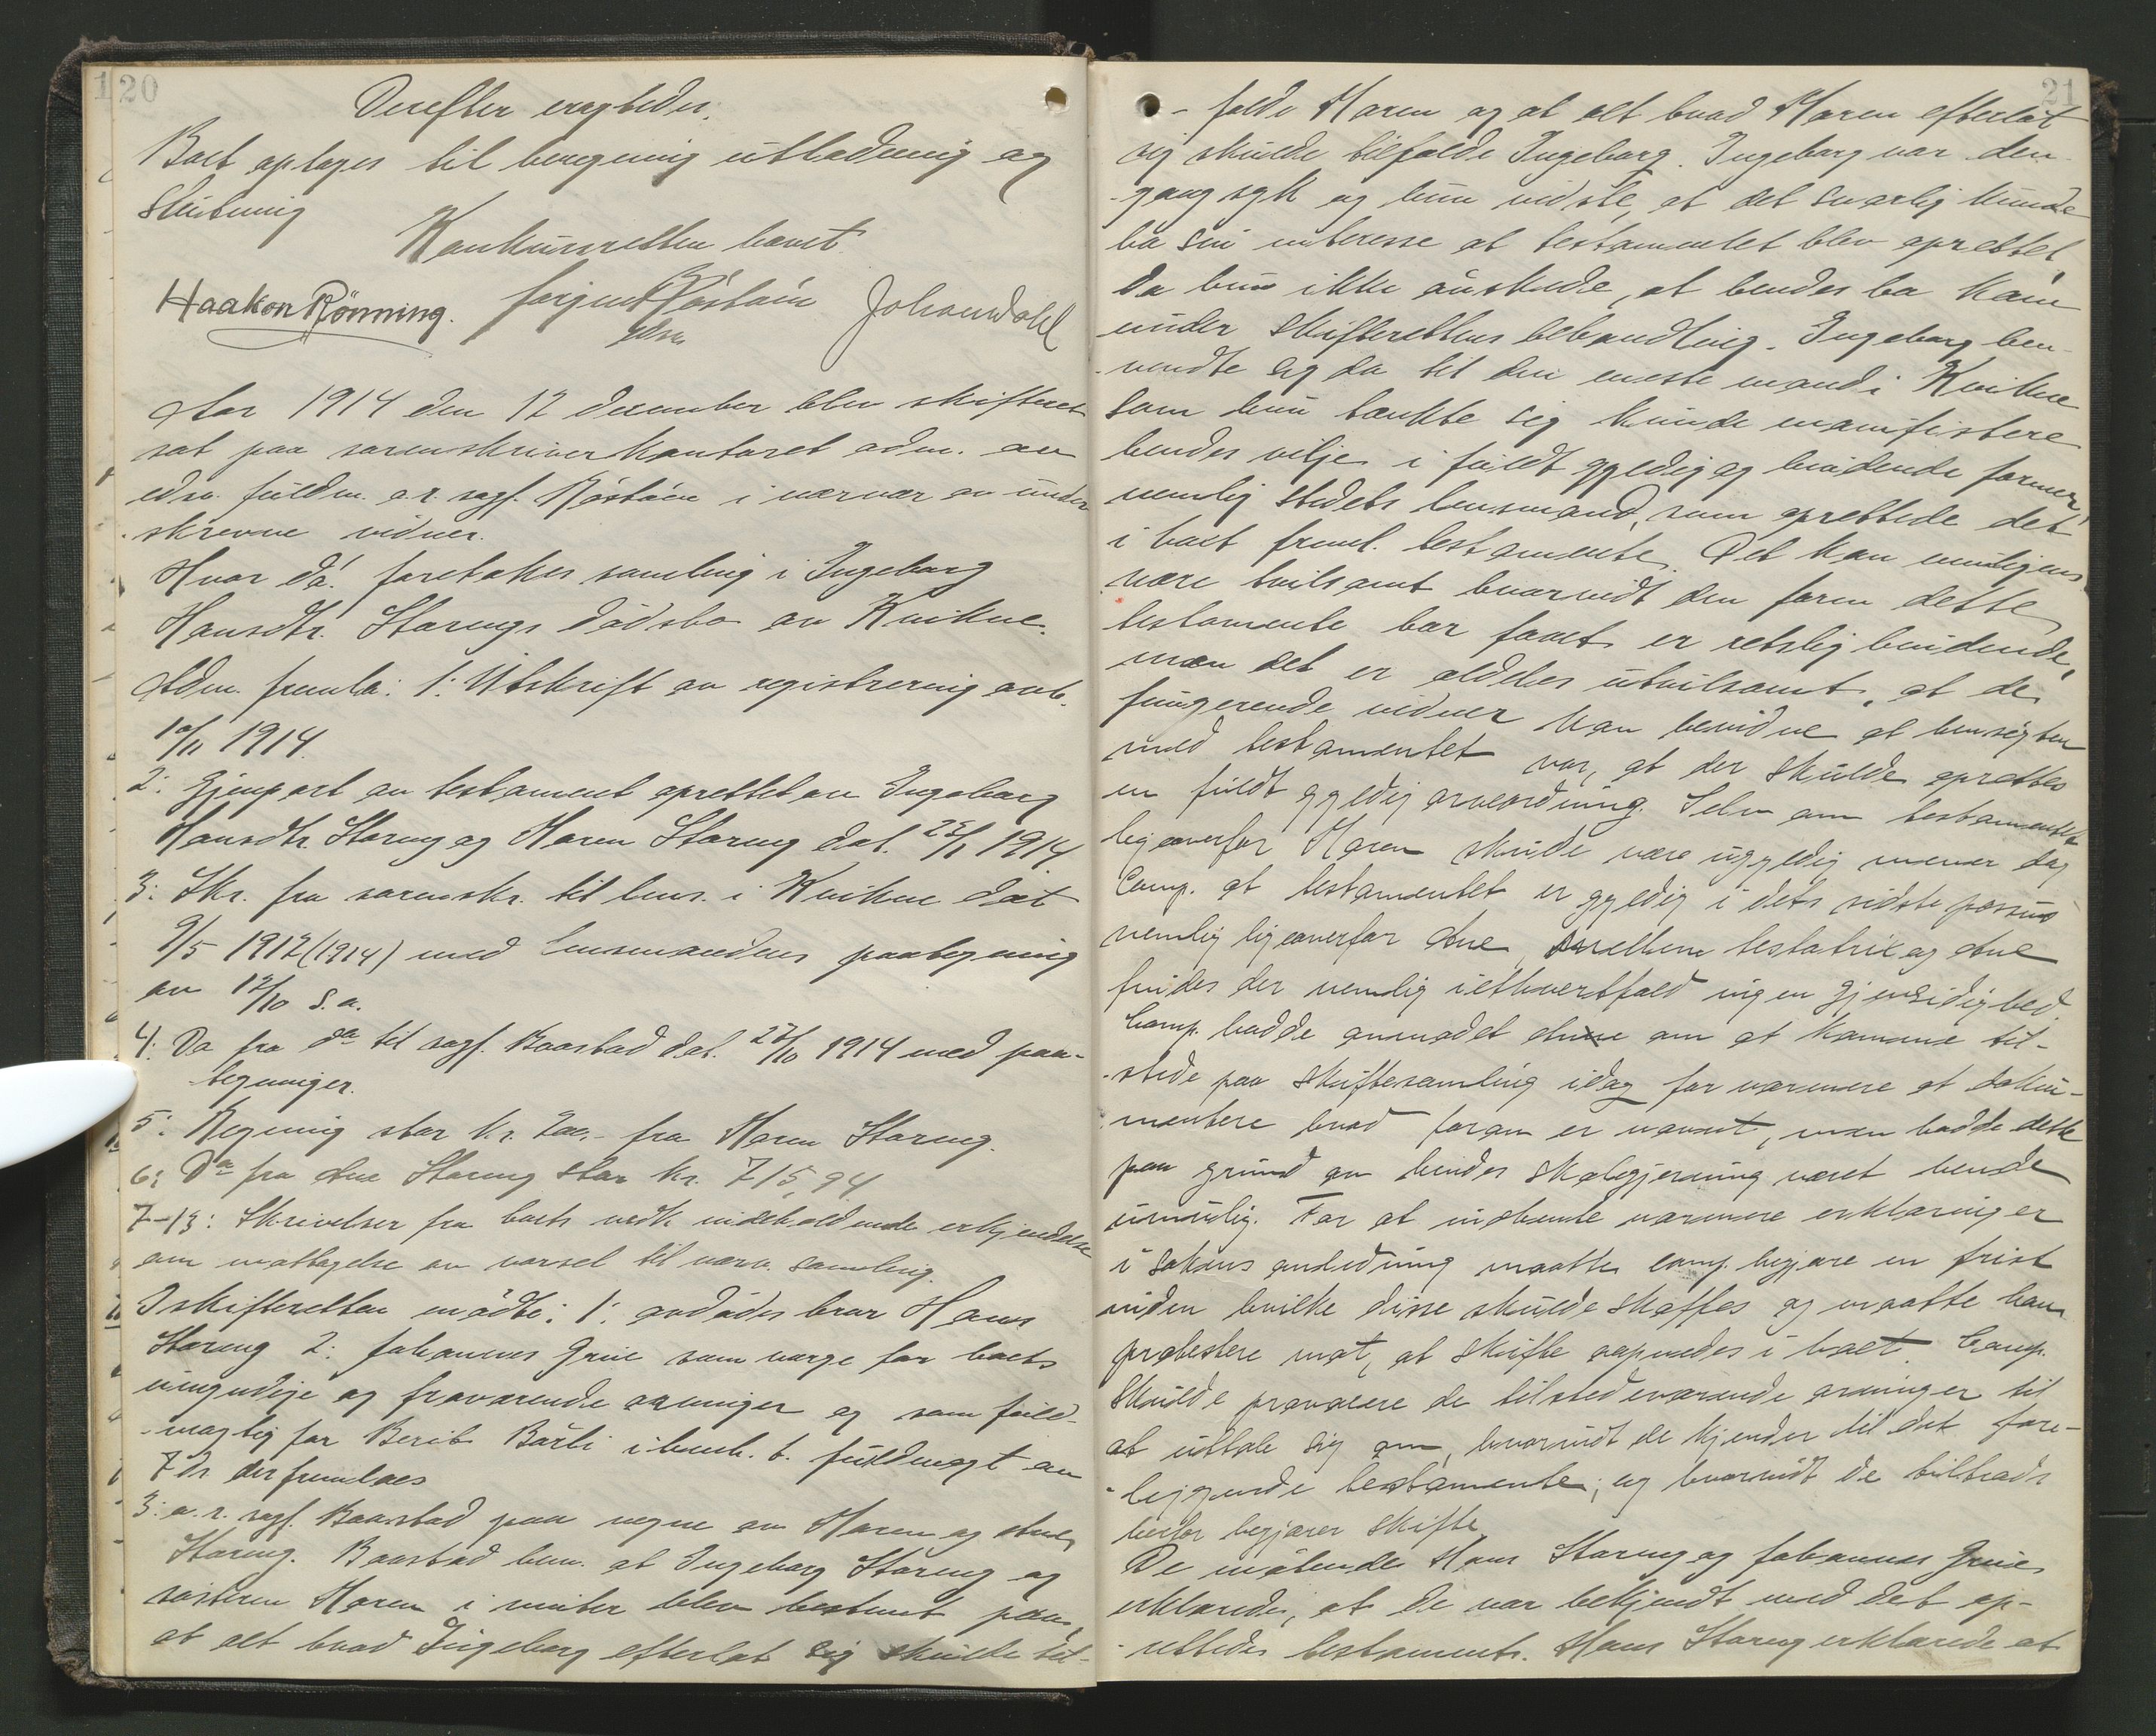 20
Derefter eragtedes:
Boet optages til beregning utlodning og
Slutning
Konkursretten hævet.
Haakon Rönning. Jørgen Röstöen Johan Dahl
edsv.
Aar 1914 den 12 december blev skifteret
sat paa sorenskriverkontoret adm. av
edsv. fuldm. o.r. sagf. Röstöen i nærvær av under
skrevne vidner.
Hvor da! foretokes samling i Ingeborg
Hansdtr. Storengs dödsbo av Kvikne.
Adm. fremla: 1: Utskrift av registrering avh.
10/11 1914.
2: Gjenpart av testament oprettet av Ingeborg
Hansdtr Storeng og Maren Storeng dat. 25/1 1914
3: Skr. fra sorenskr. til lens. i Kvikne dat
9/5 1912 (1914) med lensmandens paategning
av 12/10 s.a.
4: Do fra do til sagf. Baastad dat. 27/10 1914 med paa-
tegninger.
5: Regning stor kr. 200.- fra Maren Storeng.
6: Do fra Ane Storeng stor kr. 715,94
7-13: Skrivelser fra boets vedk. indeholdende erkjendelse
om mottagelse av varsel til nærv. samling.
I skifteretten mödte: 1: avdödes bror Hans
Storeng 2: Johannes Grue som verge for boets
umyndige og fraværende arvinger og som fuld-
-mægtig for Berit Bärli i henh. t. fuldmagt av
7 ds der fremlaes
3: o.r. sagf. Baastad paa vegne av Maren og Ane
Storeng. Baastad bem. at Ingeborg Storeng og
søsteren Maren i vinter blev bestemt paa,
at alt hvad Ingeborg efterlot sig skulde til-
21
- falde Maren og at alt hvad Maren efterlot
sig skulde tilfalde Ingeborg. Ingeborg var den-
-gang syk og hun vidste, at det snarlig kunde
ha sin interesse at testamentet blev oprettet,
da hun ikke ønskede, at hendes bo kom
under skifterettens behandling. Ingeborg hen-
-vendte sig da til den eneste mand i Kvikne
som hun tænkte sig kunde manifistere
hendes vilje i fuldt gyldig og bindende former,
nemlig stedets lensmand, som oprettede det
i boet freml. testamente. Det kan muligens
være tvilsomt hvorvidt den form dette
testamente har faat er retslig bindende,
men det er aldeles utvilsomt, at de
fungerende vidner kan bevidne at hensigten
med testamentet var, at der skulde oprettes
en fuldt gyldig arveordning. Selv om testamentet
ligeoverfor Maren skulde være ugyldig mener dog
Comp. at testamentet er gyldig i dets sidste passus
nemlig ligeoverfor Ane, mellem testatrix og Ane
findes der nemlig iethvertfald ingen gjensidighed.
Comp. hadde anmodet denne om at komme til-
-stede paa skiftesamling idag for nærmere at doku-
-mentere hvad foran er nævnt, men hadde dette
paa grund av hendes skolegjerning været hende
umulig. For at indhente nærmere erklæringer
i sakens anledning maatte comp. begjære en frist
inden hvilke disse skulde skaffes og maatte han
protestere mot, at skifte aapnedes i boet. Comp.
skulde provocere de tilstedeværende arvinger til
at uttale sig om, hvorvidt de kjender til det fore-
-liggende testamente, og hvorvidt de tiltrods
herfor begjærer skifte
De mötende Hans Storeng og Johannes Grue
erklærede, at de var bekjendt med det op-
-rettede testamente. Hans Storeng erklærede at